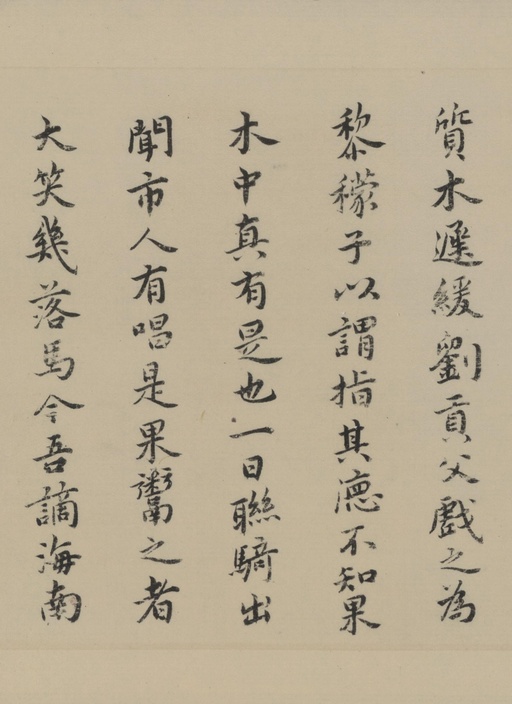 質木遲緩劉貢父戲之為
黎檬子以謂指其德不知果
木中真有是也一日聯騎出
聞市人有唱是果鬻之者
大笑幾落馬今吾謫海南